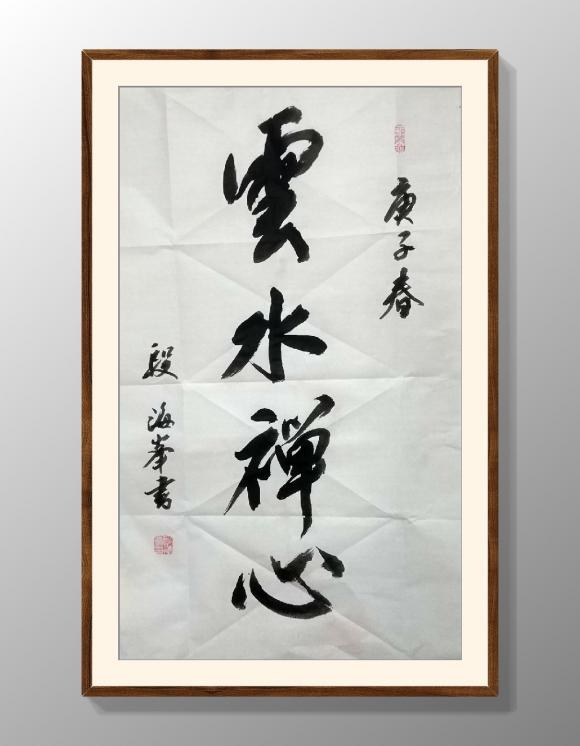 庚子春
雲水禅心
段海峯書